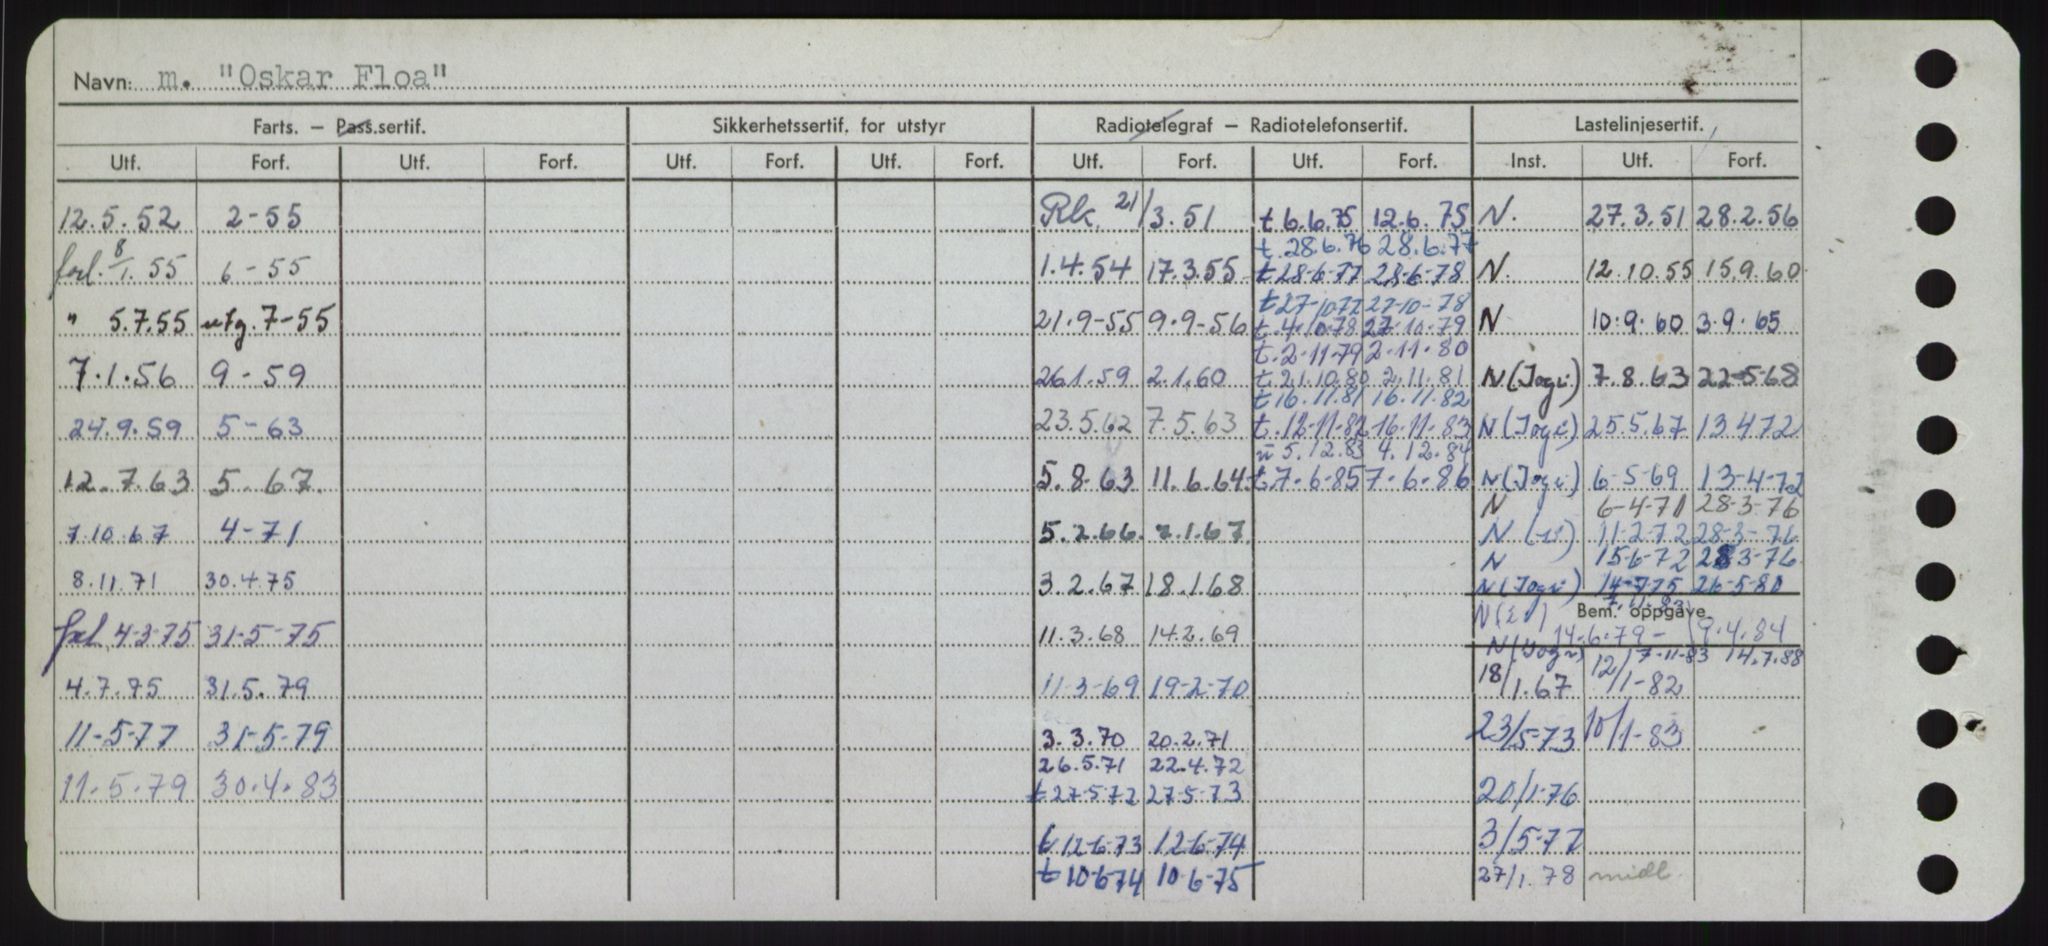 Navn: m. "Oskar Floa"
Farts. – Pass.sertif. Sikkerhetssertif. for utstyr Radiotelegraf – Radiotelefonsertif. Lastelinjesertif.
Utf. Forf. Utf. Forf. Utf. Forf. Utf. Forf. Utf. Forf. Utf. Forf. Inst. Utf. Forf.
12.5.52 2-55 Rk. 21/3.51 t 6.6.75 12.6.75 N. 27.3.51 28.2.56
t. 28.6.76 28.6.77
forl. 8/1.55 6-55 1.4.54 17.3.55 t 28-6-77 28-6-78 N. 12.10.55 15.9.60
t 27-10-77 27-10-78
" 5.7.55 utg. 7-55 21.9-55 9.9-56 t. 4.10.78 27.10.79 N 10.9.60 3.9.65
t. 2-11-79 2-11-80
7.1.56 9-59 26.1.59 2.1.60 t. 21.10.80 2.11.81 N (Jogi) 7.8.63 22-5-68
t 16.11.81 16.11.82
24.9.59 5-63 23.5.62 7.5.63 t. 12-11-82 16.11.83 N (Jogi) 25.5.67 13.4.72
5.12.83 4.12.84
12.7.63 5.67 5.8.63 11.6.64 t. 7.6.85 7.6.86 N (Jogi) 6-5-69 13-4-72
N 6-4-71 28-3-76
7.10.67 4-71 5.2.66 7.1.67 N 11-2-72 28-3-76
N 15-6-72 28-3-76
8.11.71 30.4.75 3.2.67 18.1.68 N (Jogi) 14-7-75 26-5-80
N 7.11.83
Bem. oppgave
forl. 4-3-75 31-5-75 11.3.68 14.2.69 14.6.79 - 9.4.84
N (Jogi) 7-11-83 14.7.88
4.7.75 31.5.79 11-3-69 19-2-70 18/1.67 12/1-82
11-5-77 31-5-79 3.3.70 20.2.71 23/5-73 10/1-83
26.5.71 22.4.72
11.5.79 30.4.83 t 27-5-72 27-5-73 20/1-76
t 12-6-73 12-6-74 3/5-77
t 10-6-74 10-6-75 27/1.78 midl.